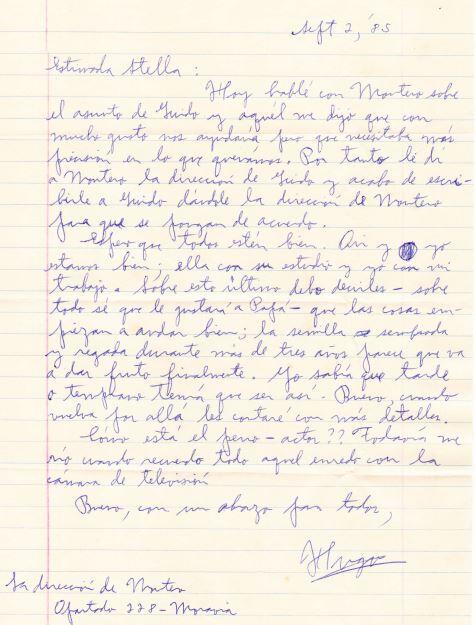 Sept 2, '85
Estimada Stella:
Hoy hablé con Montero sobre
el asunto de Guido y aquél me dijo que con
mucho gusto nos ayudaría pero que necesitaba más
precisión en lo que queríamos. Por tanto le di
a Montero la dirección de Guido y acabo de escri-
birle a Guido dándole la dirección de Montero
para que se pongan de acuerdo.
Espero que todos estén bien. Ori y yo
estamos bien; ella con su estudio y yo con mi
trabajo. Sobre esto último debo decirles - sobre
todo sé que le gustará a Papá - que las cosas em-
piezan a andar bien; la semilla sembrada
y regada durante más de tres años parece que va
a dar fruto finalmente. Yo sabía que tarde
o temprano tenía que ser así. Bueno, cuando
vuelva por allá les contaré con más detalles.
Cómo está el perro-actor?? Todavía me
río cuando recuerdo todo aquel enredo con la
cámara de televisión
Bueno, con un abrazo para todos,
Hugo
La dirección de Montero
Apartado 228-Moravia